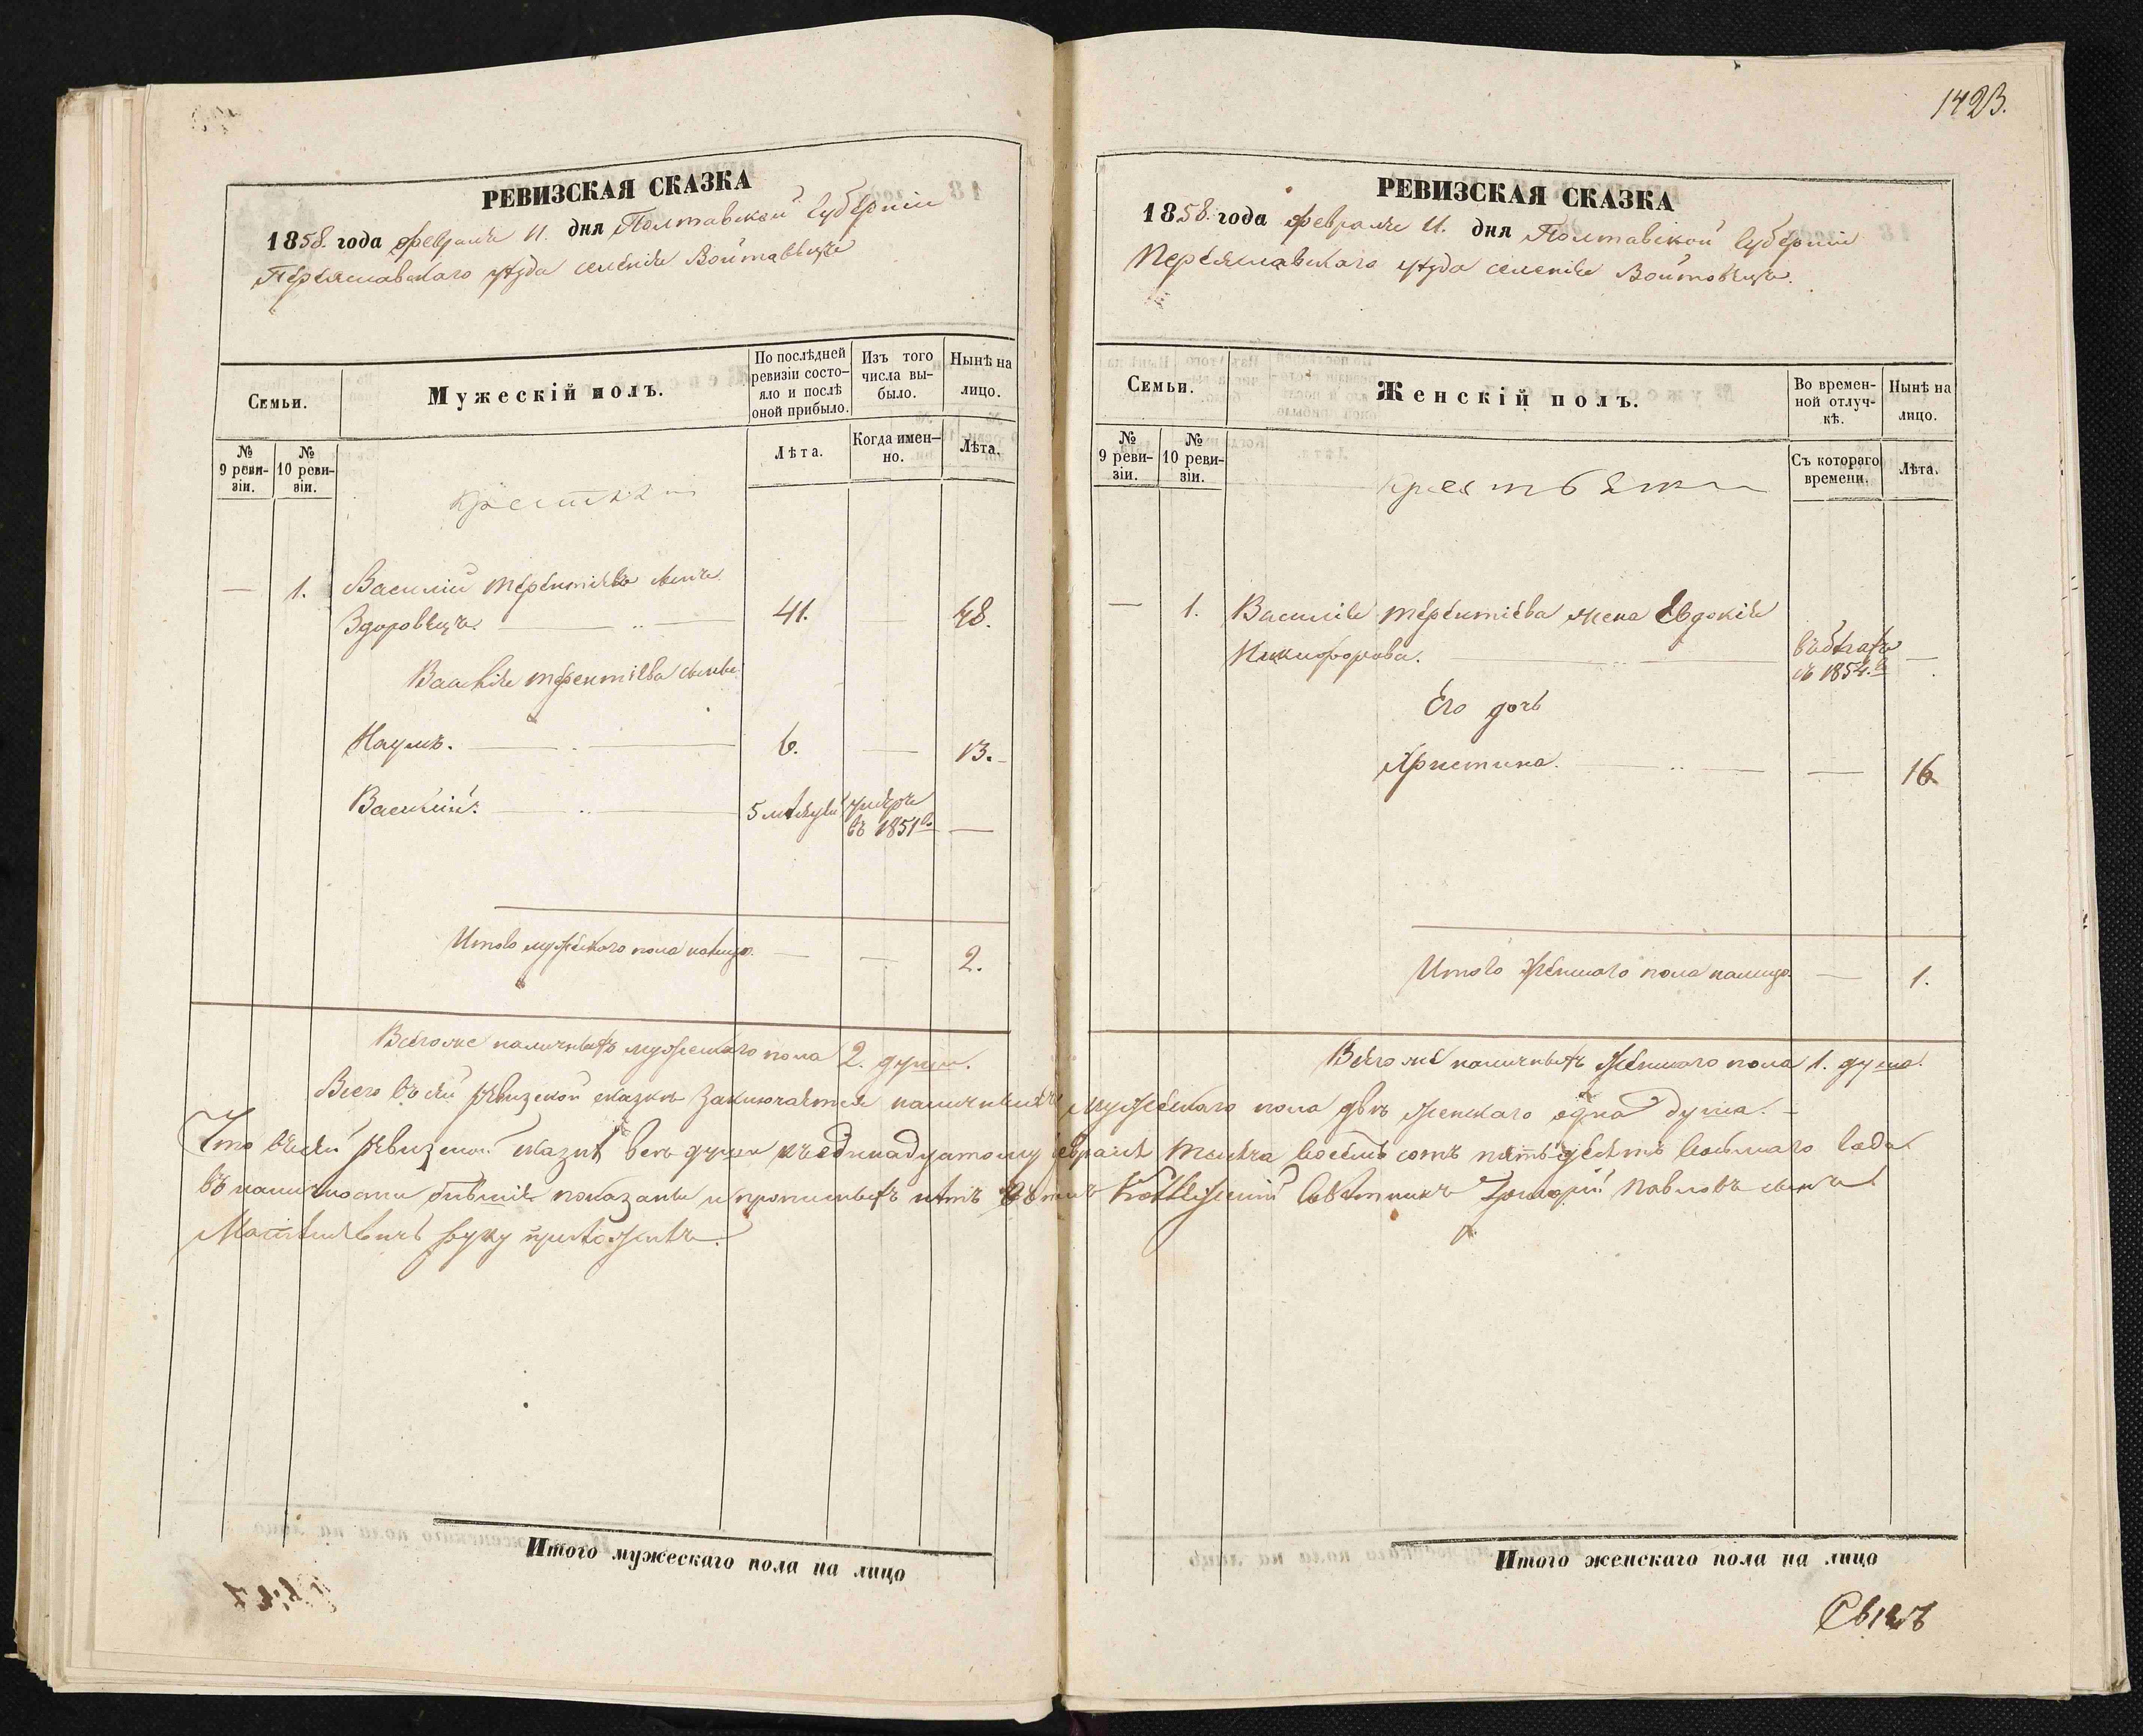 1423.
РЕВИЗСКАЯ СКАЗКА
1858. года Февраля 11. дня Полтавской Губерніи
Переяславскаго уѣзда селенія Войтовецъ
Семьи.
Мужескій полъ.
По послѣдней ревизіи состояло и послѣ оной прибыло.
Изъ того числа выбыло.
Нынѣ на лицо.
№ 9 ревизіи.
№ 10 ревизіи.
Лѣта.
Когда именно.
Лѣта.
— 1. Василій Терентіевъ сынъ
Здоровецъ. 41. — 48.
Василія Терентіева сыновья
Наумъ. 6. — 13.
Василій. 5 мѣсяцев умеръ
въ 1851 —
Итого мужескаго пола налицо. — — 2.
Всего же наличныхъ мужескаго пола 2. души.
РЕВИЗСКАЯ СКАЗКА
1858. года Февраля 11. дня Полтавской Губерніи
Переяславскаго уѣзда селенія Войтовецъ.
Семьи.
Женскій полъ.
Во временной отлучкѣ.
Нынѣ на лицо.
№ 9 ревизіи.
№ 10 ревизіи.
Съ котораго времени.
Лѣта.
Крестьяне
— 1. Василія Терентіева жена Евдокія
Никифорова. въ бѣгахъ
съ 1854. —
Его дочь
Христина. — 16
Итого женскаго пола налицо — 1.
Всего же наличныхъ женскаго пола 1. душа.
Всего въ сей ревизской сказкѣ заключается наличныхъ мужескаго пола двѣ женскаго одна душа.
Что въ сей ревизской сказкѣ всѣ души къ единадцатому февраля тысяча восемь сотъ пятьдесятъ восьмаго года
въ наличности бывшія показаны и прописныхъ нѣтъ въ томъ Коллежскій Совѣтникъ Григорій Павловъ сынъ
руку приложилъ.
Итого мужескаго пола на лицо
Итого женскаго пола на лицо